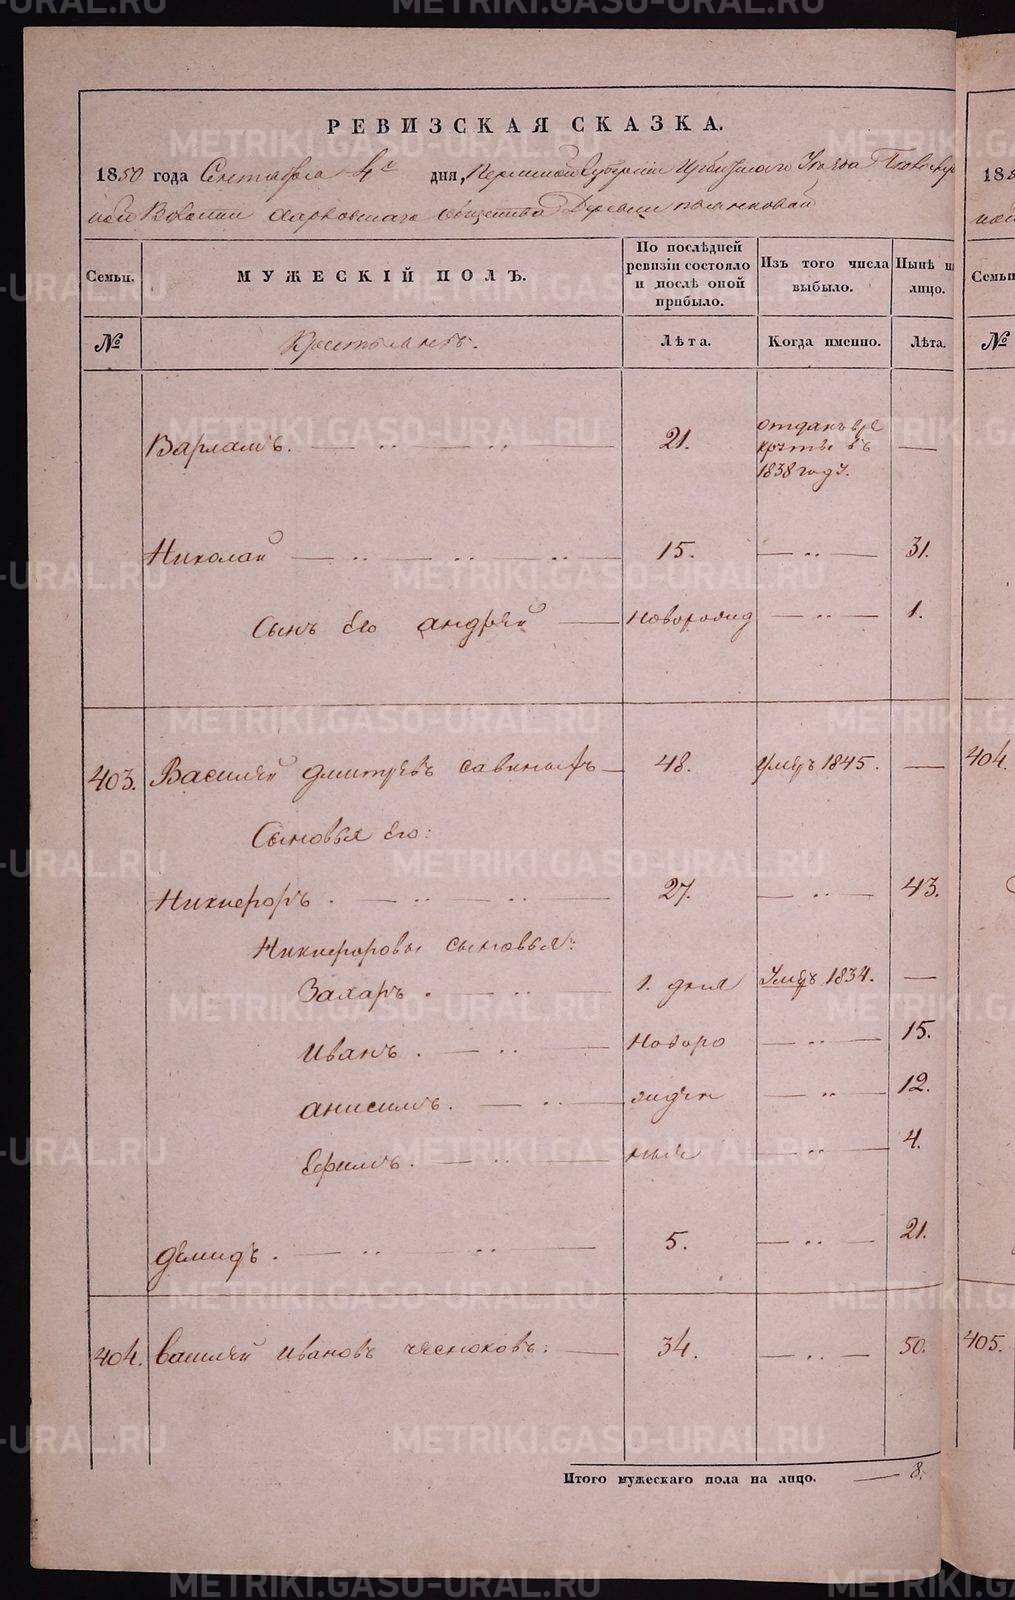 РЕВИЗСКАЯ СКАЗКА.
1850 года Сентября 4го дня, Пермской Губернии Ирбитского Уезда
Волости Харловского общества Деревни
Семьи. МУЖЕСКІЙ ПОЛЪ. По послѣдней ревизіи состояло и послѣ оной прибыло. Изъ того числа выбыло. Нынѣ на лицо.
№ Крестьянъ. Лѣта. Когда именно. Лѣта.
Варламъ. 21. отданъ въ рекруты въ 1838 году. —
Николай 15. — 31.
Сынъ Его андрей новорожд — 1.
403. Василей дмитревъ савиныхъ 48. Умеръ 1845. —
Сыновья Его:
Никифоръ. 27. — 43.
Никифоровы сыновья:
Захаръ. 1. дня Умеръ 1834. —
Иванъ. Новоро — 15.
анисимъ. жден — 12.
Ефимъ. ныя — 4.
демидъ. 5. — 21.
404. василей Ивановъ чесноковъ: 34. — 50.
Итого мужескаго пола на лицо. — 8.
185
Семьи
№
404.
405.
METRIKI.GASO-URAL.RU